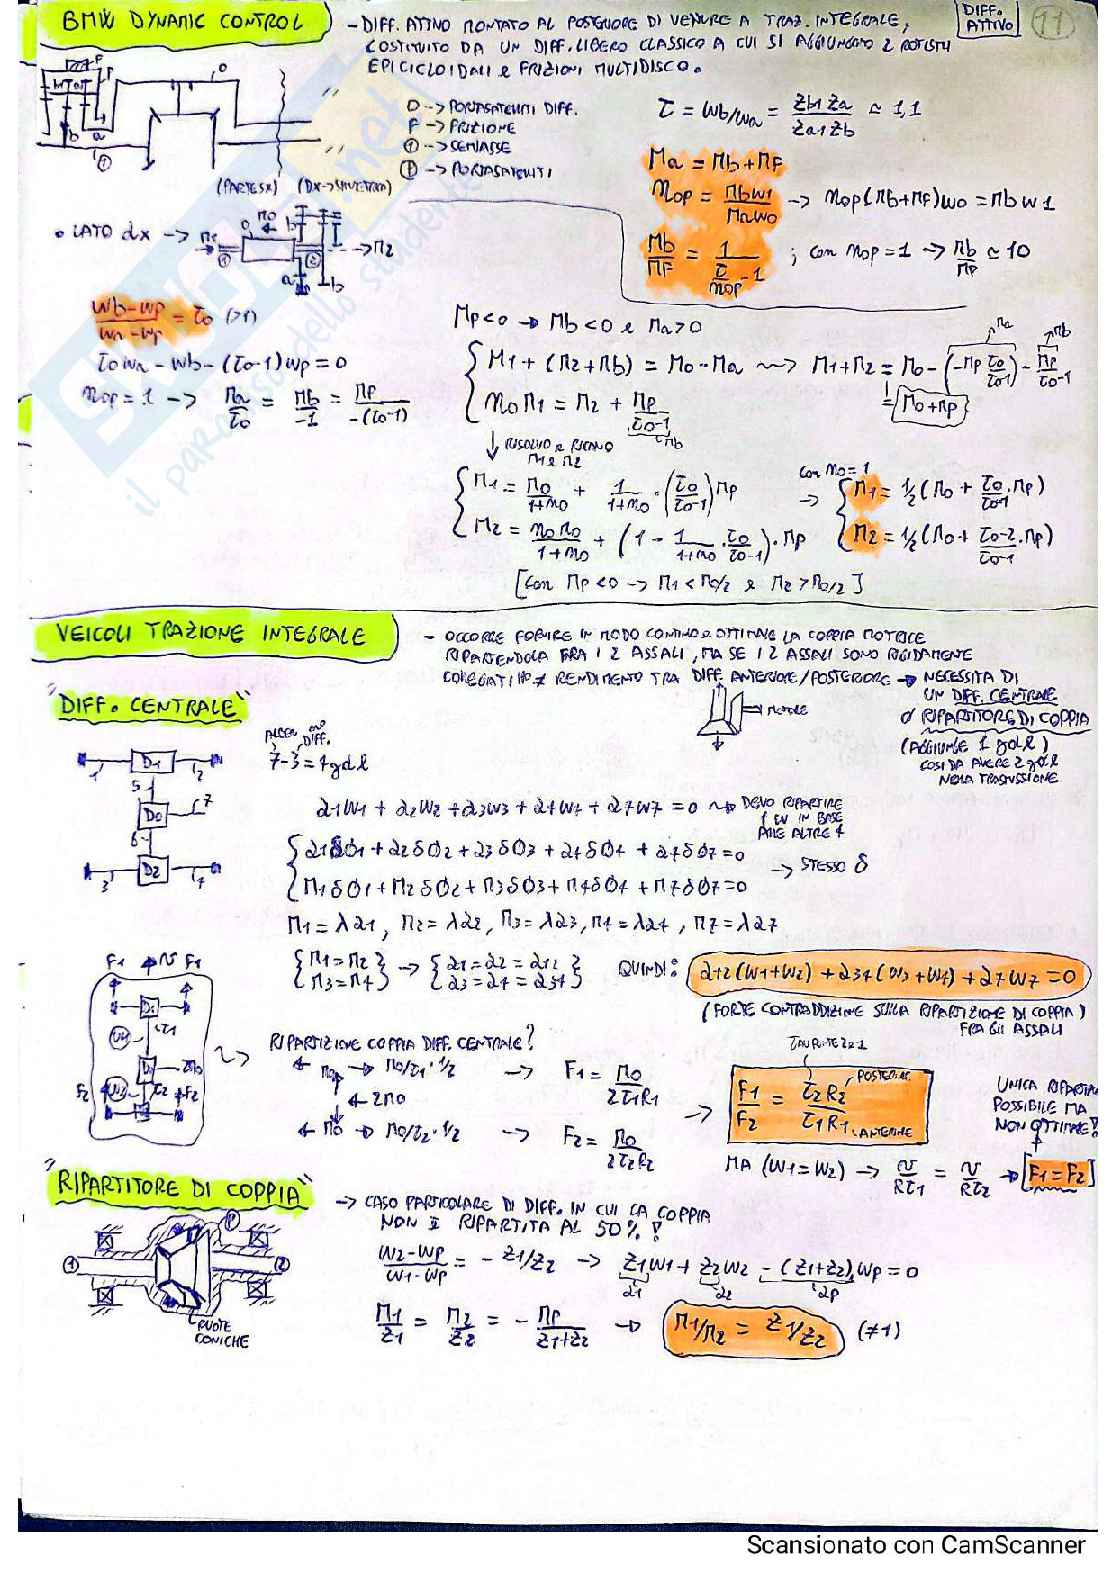 BMW DYNAMIC CONTROL
- DIFF. ATTIVO MONTATO AL POSTERIORE DI VETTURE A TRAZ. INTEGRALE,
COSTITUITO DA UN DIFF. LIBERO CLASSICO A CUI SI AGGIUNGONO 2 ROTISMI
EPICICLOIDALI e FRIZIONI MULTIDISCO.
DIFF. ATTIVO
11
0 --> PORTASATELLITI DIFF.
F --> FRIZIONE
① --> SEMIASSE
Ⓟ --> PORTASATELLITI
τ = ωb/ωa = zb1 za / za1 zb ≃ 1,1
Ma = Mb + MF
ηop = Mb ω1 / Ma ω0 -> ηop (Mb+MF) ω0 = Mb ω1
Mb/MF = 1 / (τ/ηop - 1) ; con ηop = 1 -> Mb/MF ≃ 10
(PARTE SX) (DX -> SIMMETRIA)
• LATO dx ->
M1
M0
M2
(ωb - ωp)/(ωa - ωp) = τ0 (>1)
τ0ωa - ωb - (τ0-1)ωp = 0
η0p = 1 -> Ma/τ0 = Mb/-1 = MP/-(τ0-1)
Mp<0 -> Mb<0 e Ma>0
M1 + (M2+Mb) = M0 - Ma ~> M1+M2 = M0 - (-Mp τ0/(τ0-1)) - Mp/(τ0-1)
= M0 + Mp
η0 M1 = M2 + Mp/(τ0-1)
RISOLVO e RICAVO
M1 e M2
M1 = M0/(1+η0) + 1/(1+η0) · (τ0/(τ0-1)) Mp
M2 = η0 M0/(1+η0) + (1 - 1/(1+η0) · τ0/(τ0-1)) · Mp
con η0 = 1
M1 = 1/2 (M0 + τ0/(τ0-1) · Mp)
M2 = 1/2 (M0 + (τ0-2)/(τ0-1) · Mp)
[con Mp<0 -> M1 < M0/2 e M2 > M0/2]
VEICOLI TRAZIONE INTEGRALE
- OCCORRE FORNIRE IN MODO CONTINUO e OTTIMALE LA COPPIA MOTRICE
RIPARTENDOLA FRA I 2 ASSALI, MA SE I 2 ASSALI SONO RIGIDAMENTE
COLLEGATI HO ≠ RENDIMENTO TRA DIFF. ANTERIORE/POSTERIORE -> NECESSITA DI
UN DIFF. CENTRALE
O RIPARTITORE DI COPPIA
(AGGIUNGE 1 gdl)
COSI DA AVERE 2 gdl
NELLA TRASMISSIONE
MOTORE
"DIFF. CENTRALE"
D1
D0
D2
7-3 = 4gdl
α1ω1 + α2ω2 + α3ω3 + α4ω4 + α7ω7 = 0 ~> DEVO RIPARTIRE
IN BASE
ALLE ALTRE 4
α1δθ1 + α2δθ2 + α3δθ3 + α4δθ4 + α7δθ7 = 0
-> STESSO δ
M1δθ1 + M2δθ2 + M3δθ3 + M4δθ4 + M7δθ7 = 0
M1 = λα1, M2 = λα2, M3 = λα3, M4 = λα4, M7 = λα7
M1 = M2 -> α1 = α2 = α12
M3 = M4 -> α3 = α4 = α34
QUINDI: α12(ω1+ω2) + α34(ω3+ω4) + α7ω7 = 0
(FORTE CONTRADDIZIONE SULLA RIPARTIZIONE DI COPPIA)
FRA GLI ASSALI
RIPARTIZIONE COPPIA DIFF. CENTRALE?
M0 -> M0/τ1 · 1/2 -> F1 = M0/2τ1R1
2M0
M0 -> M0/τ2 · 1/2 -> F2 = M0/2τ2R2
F1/F2 = τ2R2/τ1R1
POSTERIORE
ANTERIORE
UNICA RIPARTIZ.
POSSIBILE MA
NON OTTIMALE!
MA (ω1 = ω2) -> v/Rτ1 = v/Rτ2 -> [F1 = F2]
"RIPARTITORE DI COPPIA"
-> CASO PARTICOLARE DI DIFF. IN CUI LA COPPIA
NON È RIPARTITA AL 50%!
(ω2 - ωp)/(ω1 - ωp) = - z1/z2 -> z1ω1 + z2ω2 - (z1+z2)ωp = 0
M1/z1 = M2/z2 = - Mp/(z1+z2) -> M1/M2 = z1/z2 (≠1)
RUOTE
CONICHE
Scansionato con CamScanner